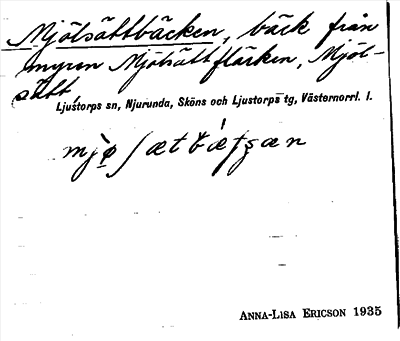 Mjölsättbäcken, bäck från
myren Mjölsättflärken, Mjöl-
sätt
Ljustorps sn, Njurunda, Sköns och Ljustorps tg, Västernorrl. l.
ANNA-LISA ERICSON 1935